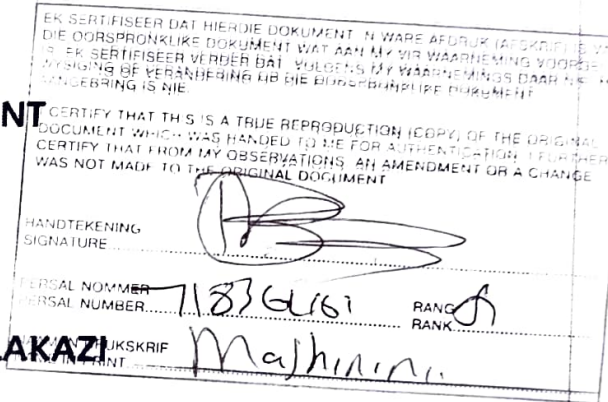 EK SERTIFISEER DAT HIERDIE DOKUMENT 'N WARE AFDRUK (AFSKRIF) IS V
DIE OORSPRONKLIKE DOKUMENT WAT AAN MY VIR WAARNEMING VOORGE
IS. EK SERTIFISEER VERDER DAT VOLGENS MY WAARNEMINGS DAAR NIE
WYSIGING OF VERANDERING OP DIE OORSPRONKLIKE DOKUMENT
AANGEBRING IS NIE.
NT
I CERTIFY THAT THIS IS A TRUE REPRODUCTION (COPY) OF THE ORIGINAL
DOCUMENT WHICH WAS HANDED TO ME FOR AUTHENTICATION. I FURTHER
CERTIFY THAT FROM MY OBSERVATIONS, AN AMENDMENT OR A CHANGE
WAS NOT MADE TO THE ORIGINAL DOCUMENT
HANDTEKENING
SIGNATURE
PERSAL NOMMER
PERSAL NUMBER RANG
RANK
AKAZI
DRUKSKRIF
PRINT Mashinini.